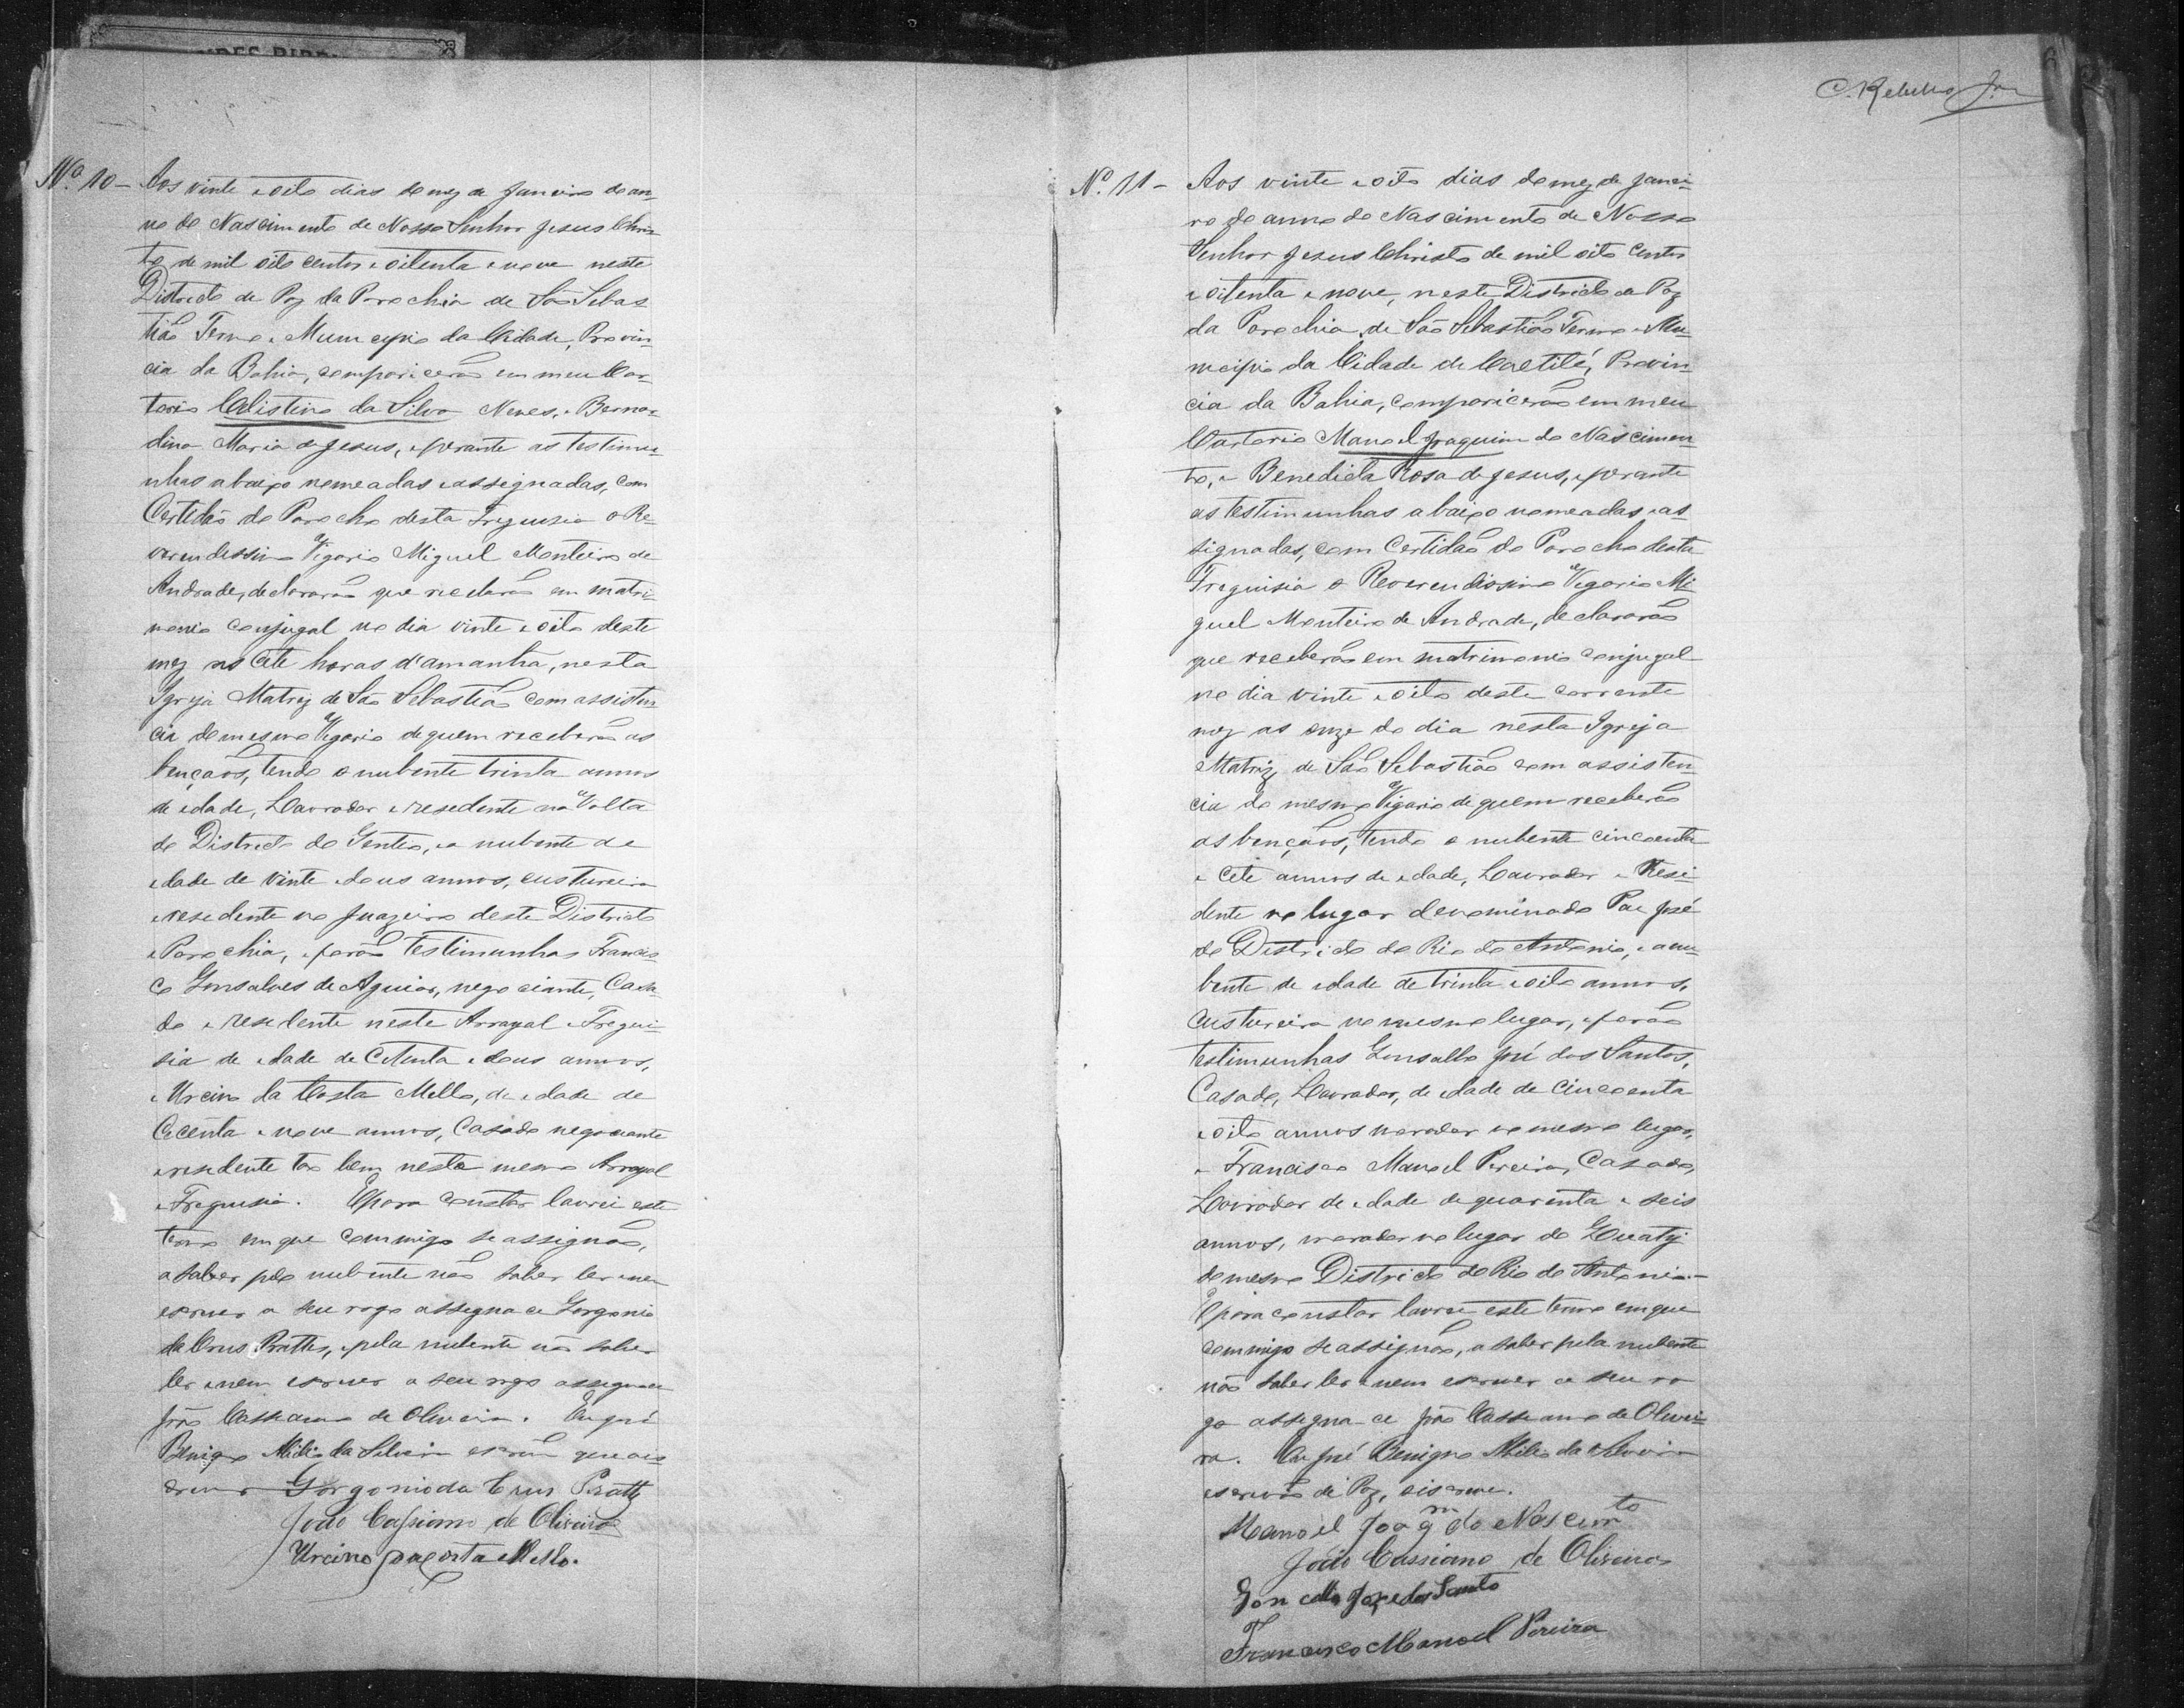 Nº. 10 - Aos vinte e oito dias do mez de Janeiro do an-
no do Nascimento de Nosso Senhor Jesus Chris-
to de mil oito centos e oitenta e nove neste
Districto de Paz da Parochia de São Sebas-
tião Termo e Municipio da Cidade, Provin-
cia da Bahia, comparicerão em meu Car-
torio Celistino da Silva Neves, e Bernar-
dina Maria de Jesus, e perante as testimu-
nhas abaixo nomeadas e assignadas, com
Certidão do Parocho desta Freguisia o Re-
verendissimo Vigario Miguel Monteiro de
Andrade, declararão que receberão em matri-
monio conjugal no dia vinte e oito deste
mez as cete horas d'amanhã, nesta
Igreja Matriz de São Sebastião com assisten-
cia do mesmo Vigario de quem receberão as
bençaõs, tendo o nubente trinta annos
de edade, Lavrador e resedente na Volta
do Districto do Gentio, e a nubente de
edade de vinte e dous annos, custureira
e resedente no Juazeiro deste Districto
e Parochia, e forão testimunhas Francis-
co Gonsalves de Aguiar, negociante, Casa-
do e resedente neste Arrayal e Fregui-
sia de edade de Cetenta e dous annos,
e Urcino da Costa Mello, de edade de
Cecenta e nove annos, Casado negociante
e residente tao bem neste mesmo Arrayal
e Freguisia. E para constar lavrei este
termo em que commigo se assignão,
a saber pelo nubente não saber ler e nem
escrever a seu rogo assigna ce Gorgonio
da Crus Prattes, e pela nubente não saber
ler e nem escrever a seu rogo assigna ce
João Casseano de Oliveira. Eu José
Benigno Abilio da Silveira escrivão que o es-
crevi Gorgonio da Crus Pratts
João Cassiano de Oliveira
Urcino da Costa Mello.
C. Rebello Jor
Nº. 11 - Aos vinte e oito dias do mez de Janei-
ro do anno do Nascimento de Nosso
Senhor Jesus Christo de mil oito centos
e oitenta e nove, neste Districto de Paz
da Parochia de São Sebastião Termo e Mu-
nicipio da Cidade de Caetité, Provin-
cia da Bahia, comparicerão em meu
Cartorio Manoel Joaquim do Nascimen-
to, e Benedicta Rosa de Jesus, e perante
as testimunhas abaixo nomeadas e as-
signadas, com Certidão do Parocho desta
Freguisia o Reverendissimo Vigario Mi-
guel Monteiro de Andrade, declararão
que receberão em matrimonio conjugal
no dia vinte e oito deste corrente
mez as onze do dia nesta Igreja
Matriz de São Sebastião com assisten-
cia do mesmo Vigario de quem receberão
as bençaõs, tendo o nubente cincoenta
e cete annos de edade, Lavrador e Resi-
dente no lugar denominado Pae José
do Districto do Rio do Antonio, e a nu-
bente de edade de trinta e oito annos,
Custureira no mesmo lugar, e forão
testimunhas Gonsallo José dos Santos,
Casado, Lavrador, de edade de Cincoenta
e oito annos morador no mesmo lugar,
e Francisco Manoel Pereira, Casado,
Lavrador de edade de quarenta e seis
annos, morador no lugar do
do mesmo Districto do Rio do Antonio.-
E para constar lavrei este termo em que
commigo se assignão, a saber pela nubente
não saber ler e nem escrever a seu ro
go assigna-ce João Casseano de Olivei-
ra. Eu José Benigno Abilio da Silveira
escrivão de Paz, o iscrevi.
Manoel Joaqm do Nascimto
João Cassiano de Oliveira
Gon callo Joze dos Santo
Francisco Manoel Pereira